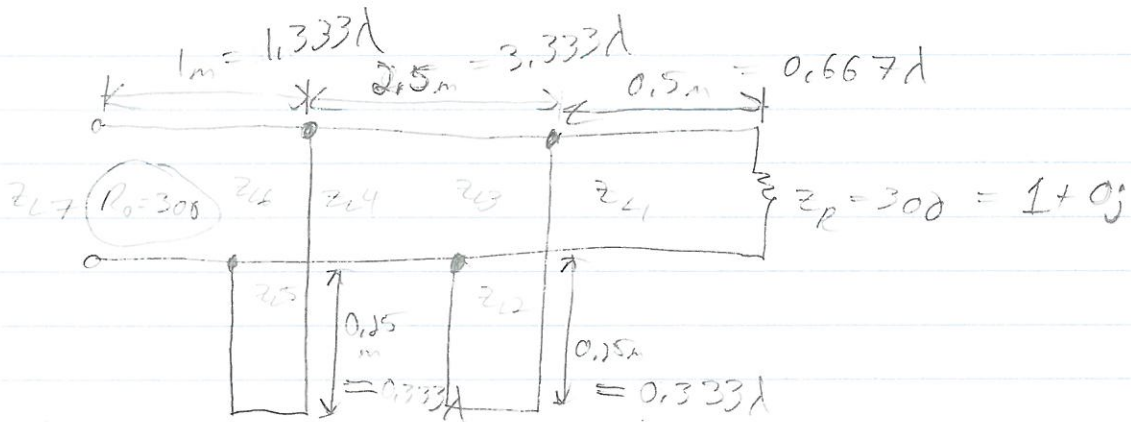 1m = 1,333λ
2,5m = 3,333λ
0,5m = 0,667λ
Z_L7 R_0=300 Z_L6 Z_L4 Z_L3 Z_L1 Z_R = 300 = 1 + 0j
Z_L5 Z_L2
0,25m = 0,333λ
0,25m = 0,333λ